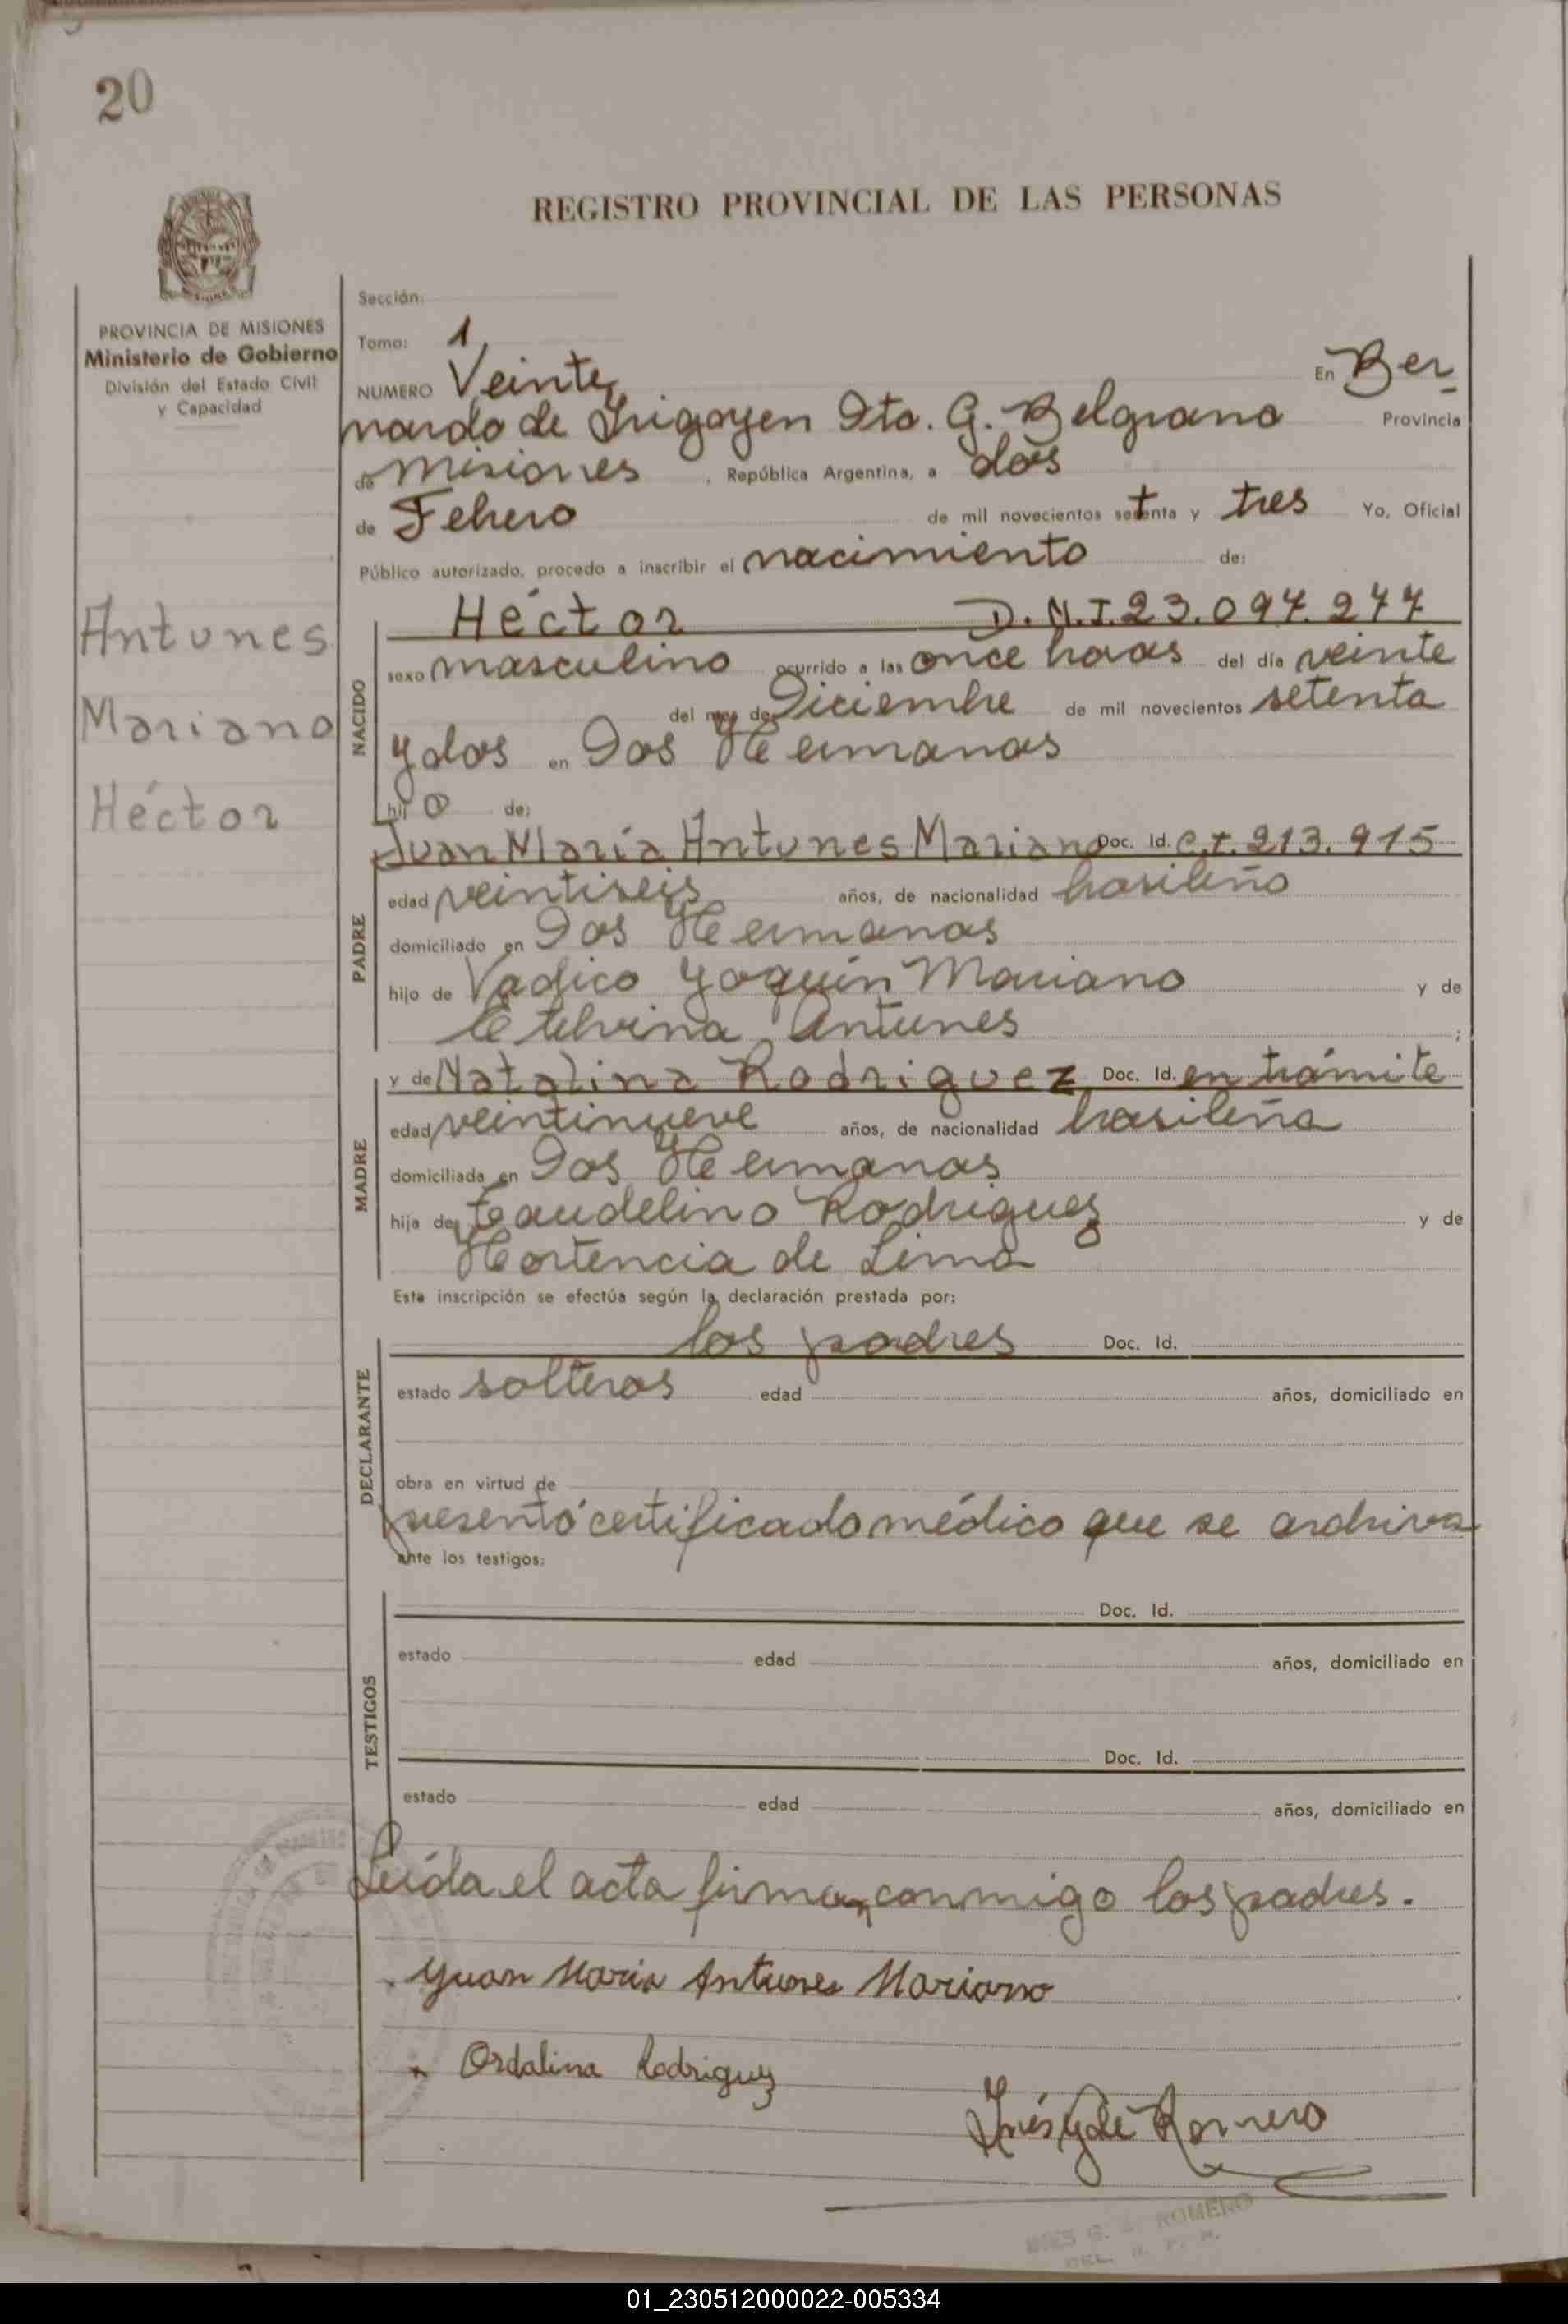 20
REGISTRO PROVINCIAL DE LAS PERSONAS
PROVINCIA DE MISIONES
Ministerio de Gobierno
División del Estado Civil
y Capacidad
Antunes
Mariano
Héctor
Sección:
Tomo: 1
NUMERO Veinte En Ber-
nardo de Irigoyen Dto. G. Belgrano Provincia
de Misiones, República Argentina, a dos
de Febrero de mil novecientos setenta y tres Yo, Oficial
Público autorizado, procedo a inscribir el nacimiento de:
NACIDO
Héctor D.N.I. 23.097.277
sexo masculino ocurrido a las once horas del día veinte
del mes de Diciembre de mil novecientos setenta
y dos en Dos Hermanas
hijo de:
PADRE
Juan María Antunes Mariano Doc. Id. C.I. 213.915
edad veintiseis años, de nacionalidad brasileño
domiciliado en Dos Hermanas
hijo de Vadico Joquín Mariano y de
Etelvina Antunes ;
MADRE
y de Natalina Rodriguez Doc. Id. en trámite
edad veintinueve años, de nacionalidad brasileña
domiciliada en Dos Hermanas
hija de Laudelino Rodriguez y de
Hortencia de Lima
Esta inscripción se efectúa según la declaración prestada por:
DECLARANTE
los padres Doc. Id.
estado solteros edad años, domiciliado en
obra en virtud de
presentó certificado médico que se archiva
ante los testigos:
TESTIGOS
Doc. Id.
estado edad años, domiciliado en
Doc. Id.
estado edad años, domiciliado en
Leída el acta firman conmigo los padres.
Yuan Maria Antunes Mariano
Ordalina Rodriguez
Inés G de Romero
INES G. ROMERO
DEL. R. P. P.
01_230512000022-005334